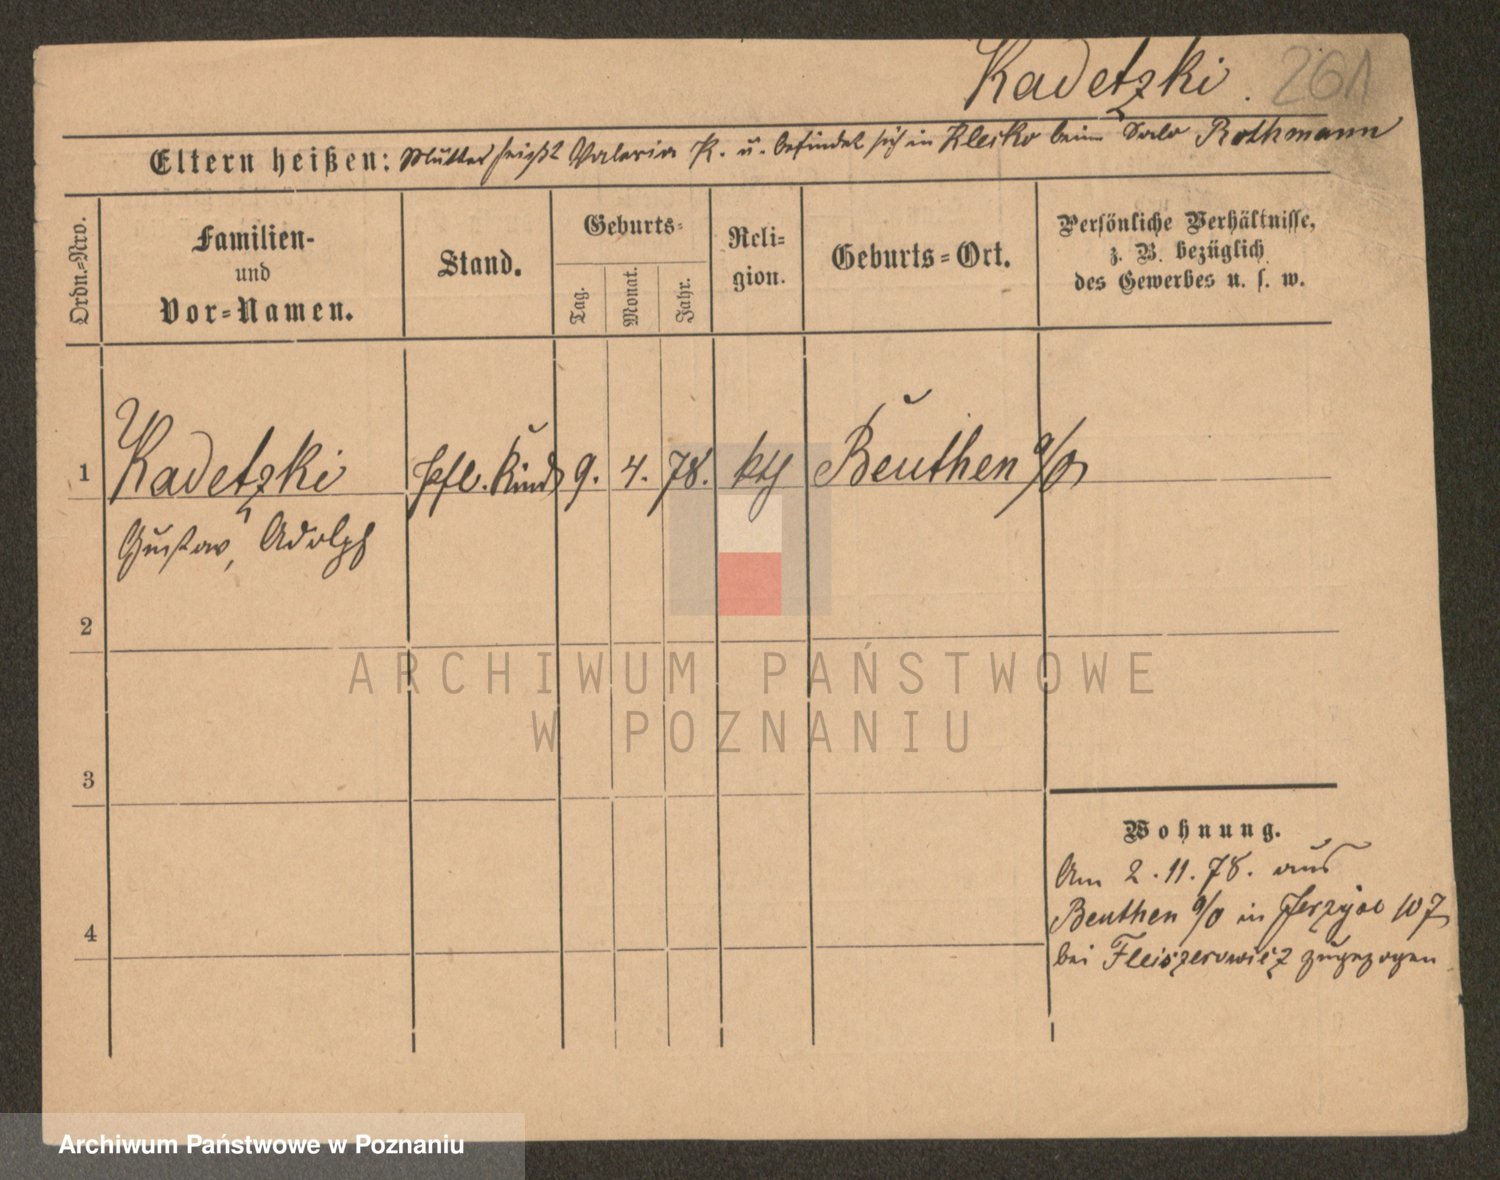 Kadetzki. 261
Eltern heißen: Mutter heißt Valeria K. u. befindet sich in Kletzko beim Salo Rothmann
Ordn.=Nro.
Familien-
und
Vor=Namen.
Stand.
Geburts=
Tag.
Monat.
Jahr.
Reli=
gion.
Geburts=Ort.
Persönliche Verhältnisse,
z. B. bezüglich
des Gewerbes u. s. w.
1 Kadetzki Pfl. Kind 9. 4. 78. kth Beuthen o/O
Gustav, Adolph
2
3
4
Wohnung.
Am 2.11.78. aus
Beuthen o/O in Jerzyce 107
bei Fleiszerowicz zugezogen
ARCHIWUM PAŃSTWOWE
W POZNANIU
Archiwum Państwowe w Poznaniu